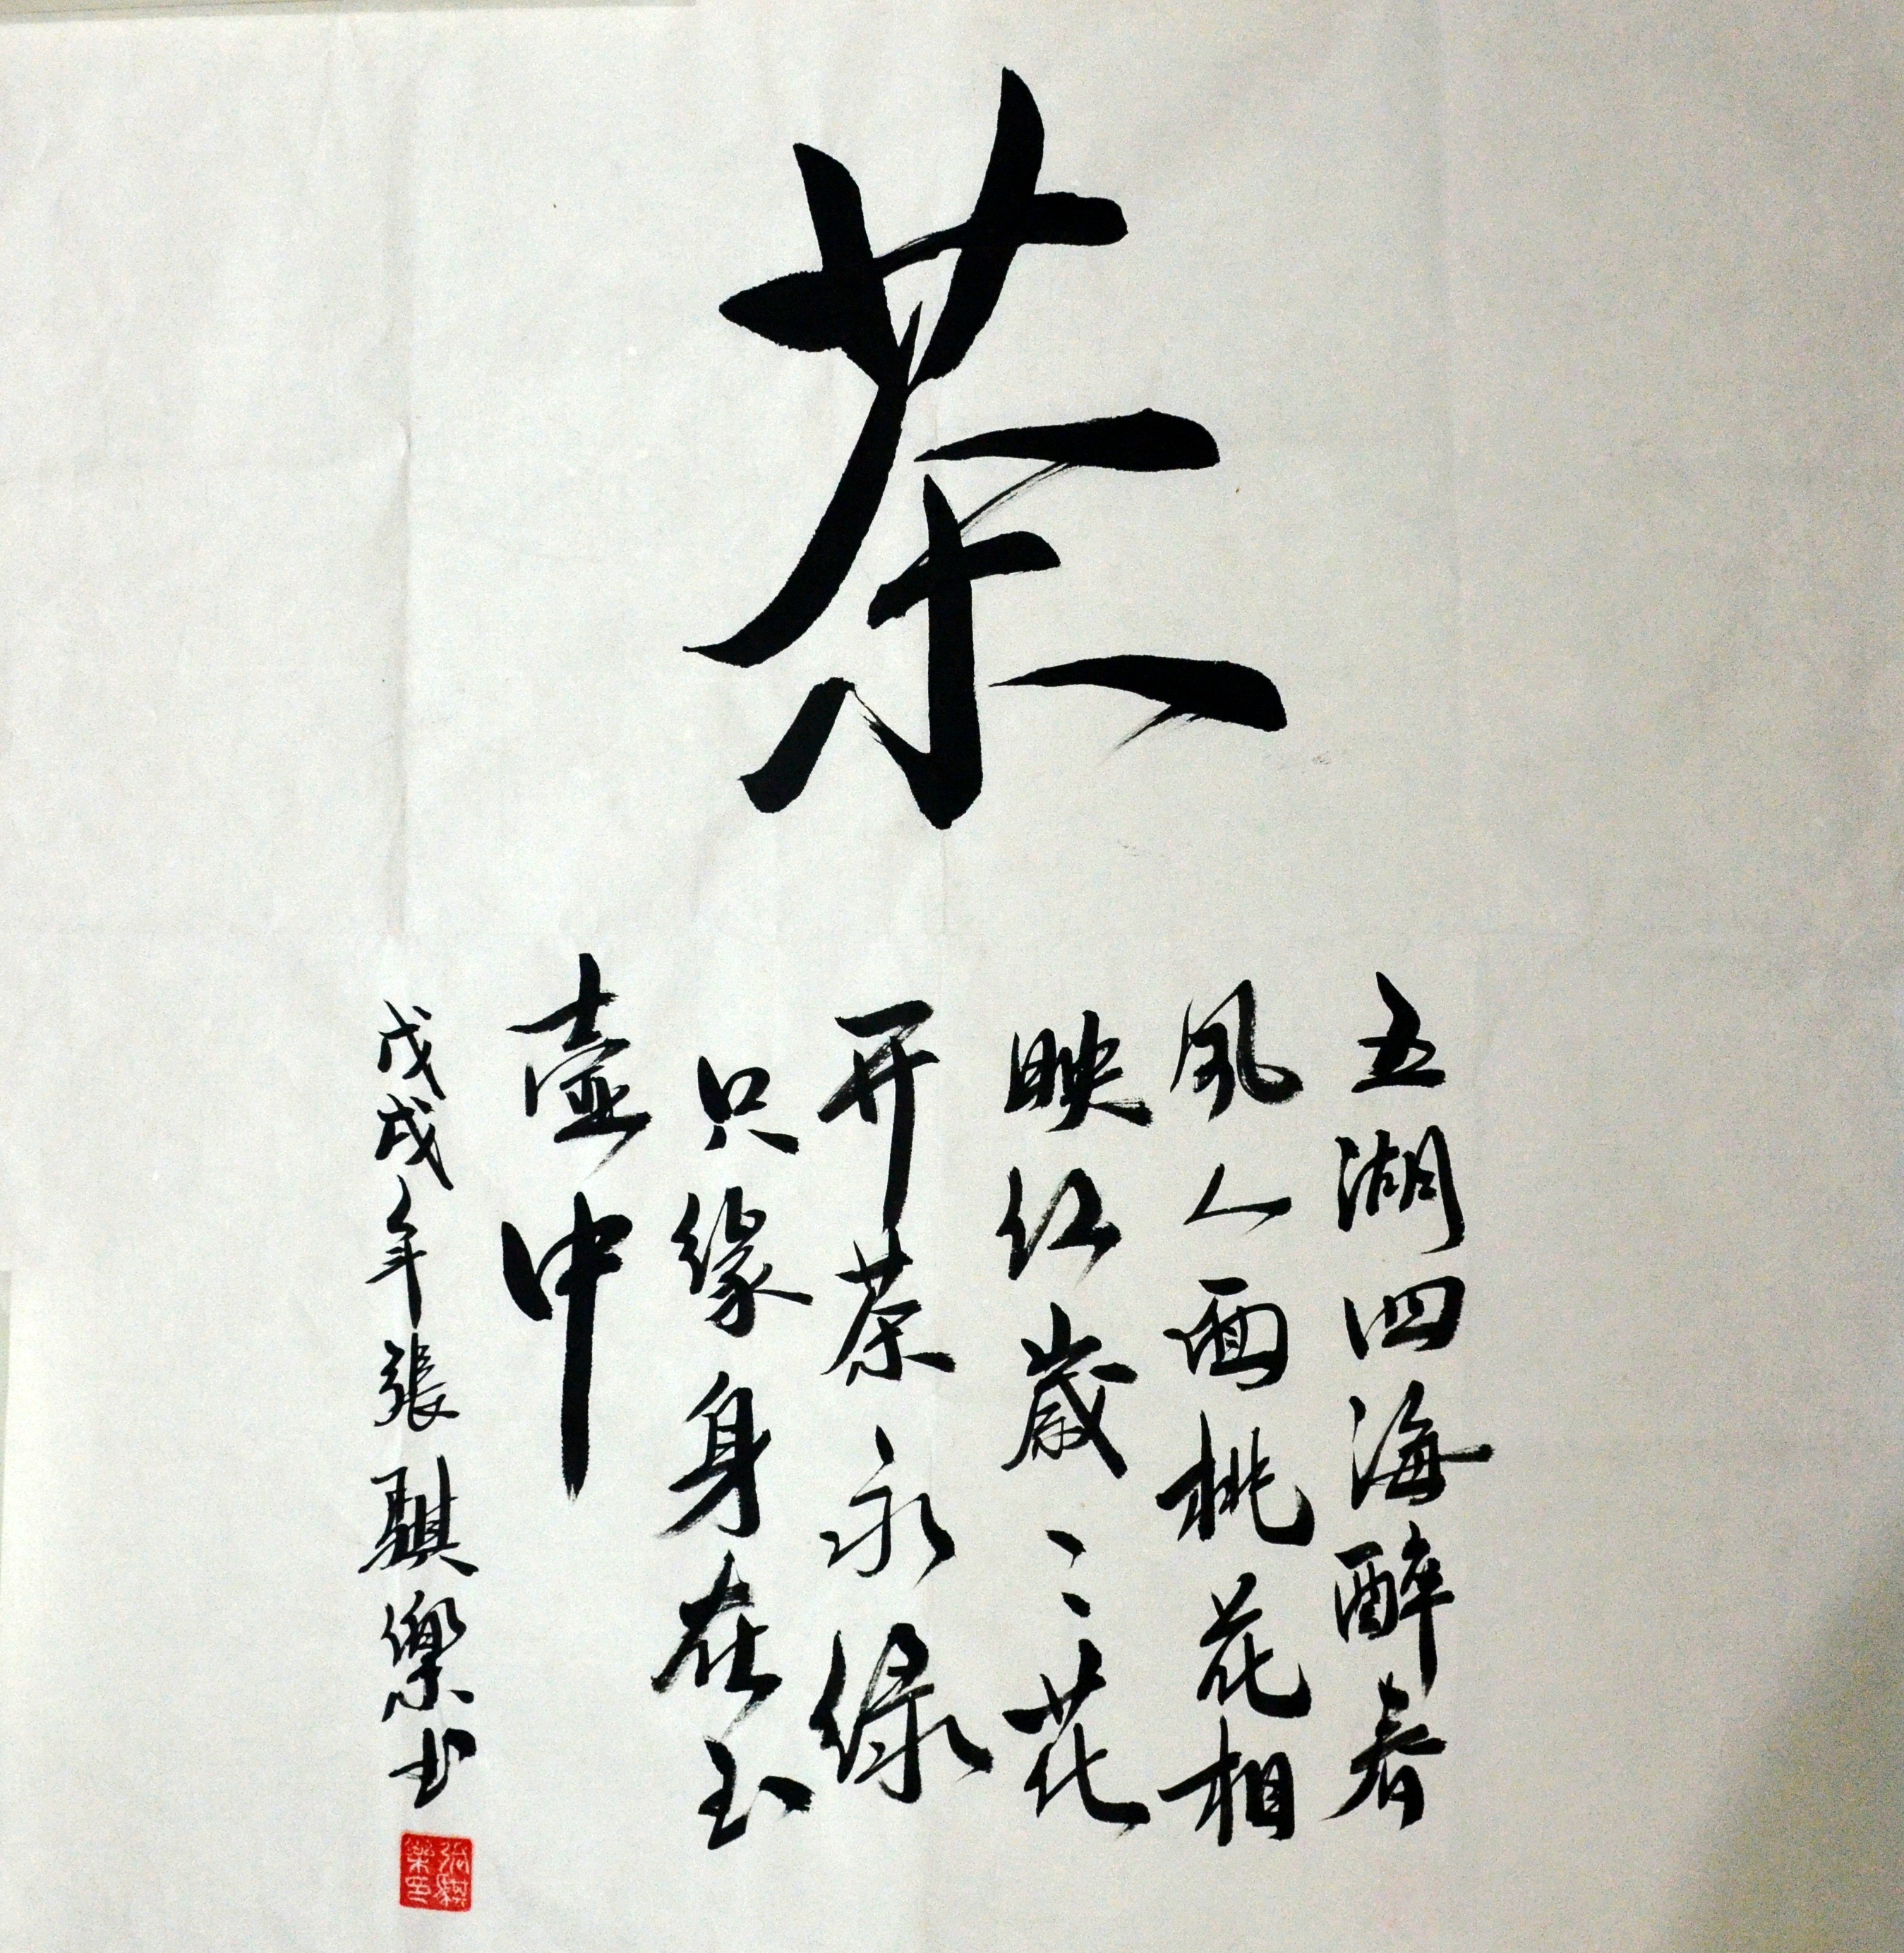 茶
五湖四海醉春
风人面桃花相
映红歲〻花
开茶永绿
只缘身在玉
壶中
戊戌年張騏樂书
張騏樂印